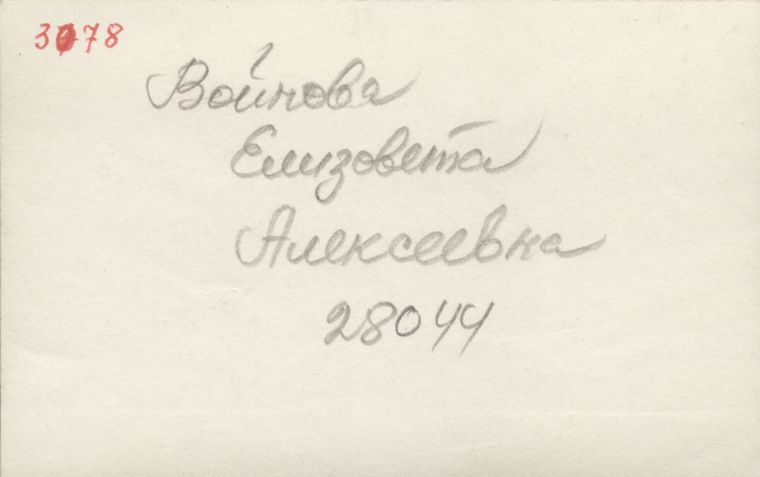 3078
Войнова
Елизовета
Алексеевна
28044